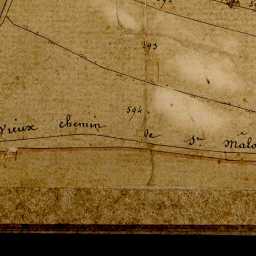 593
594
Vieux chemin de St. Malo